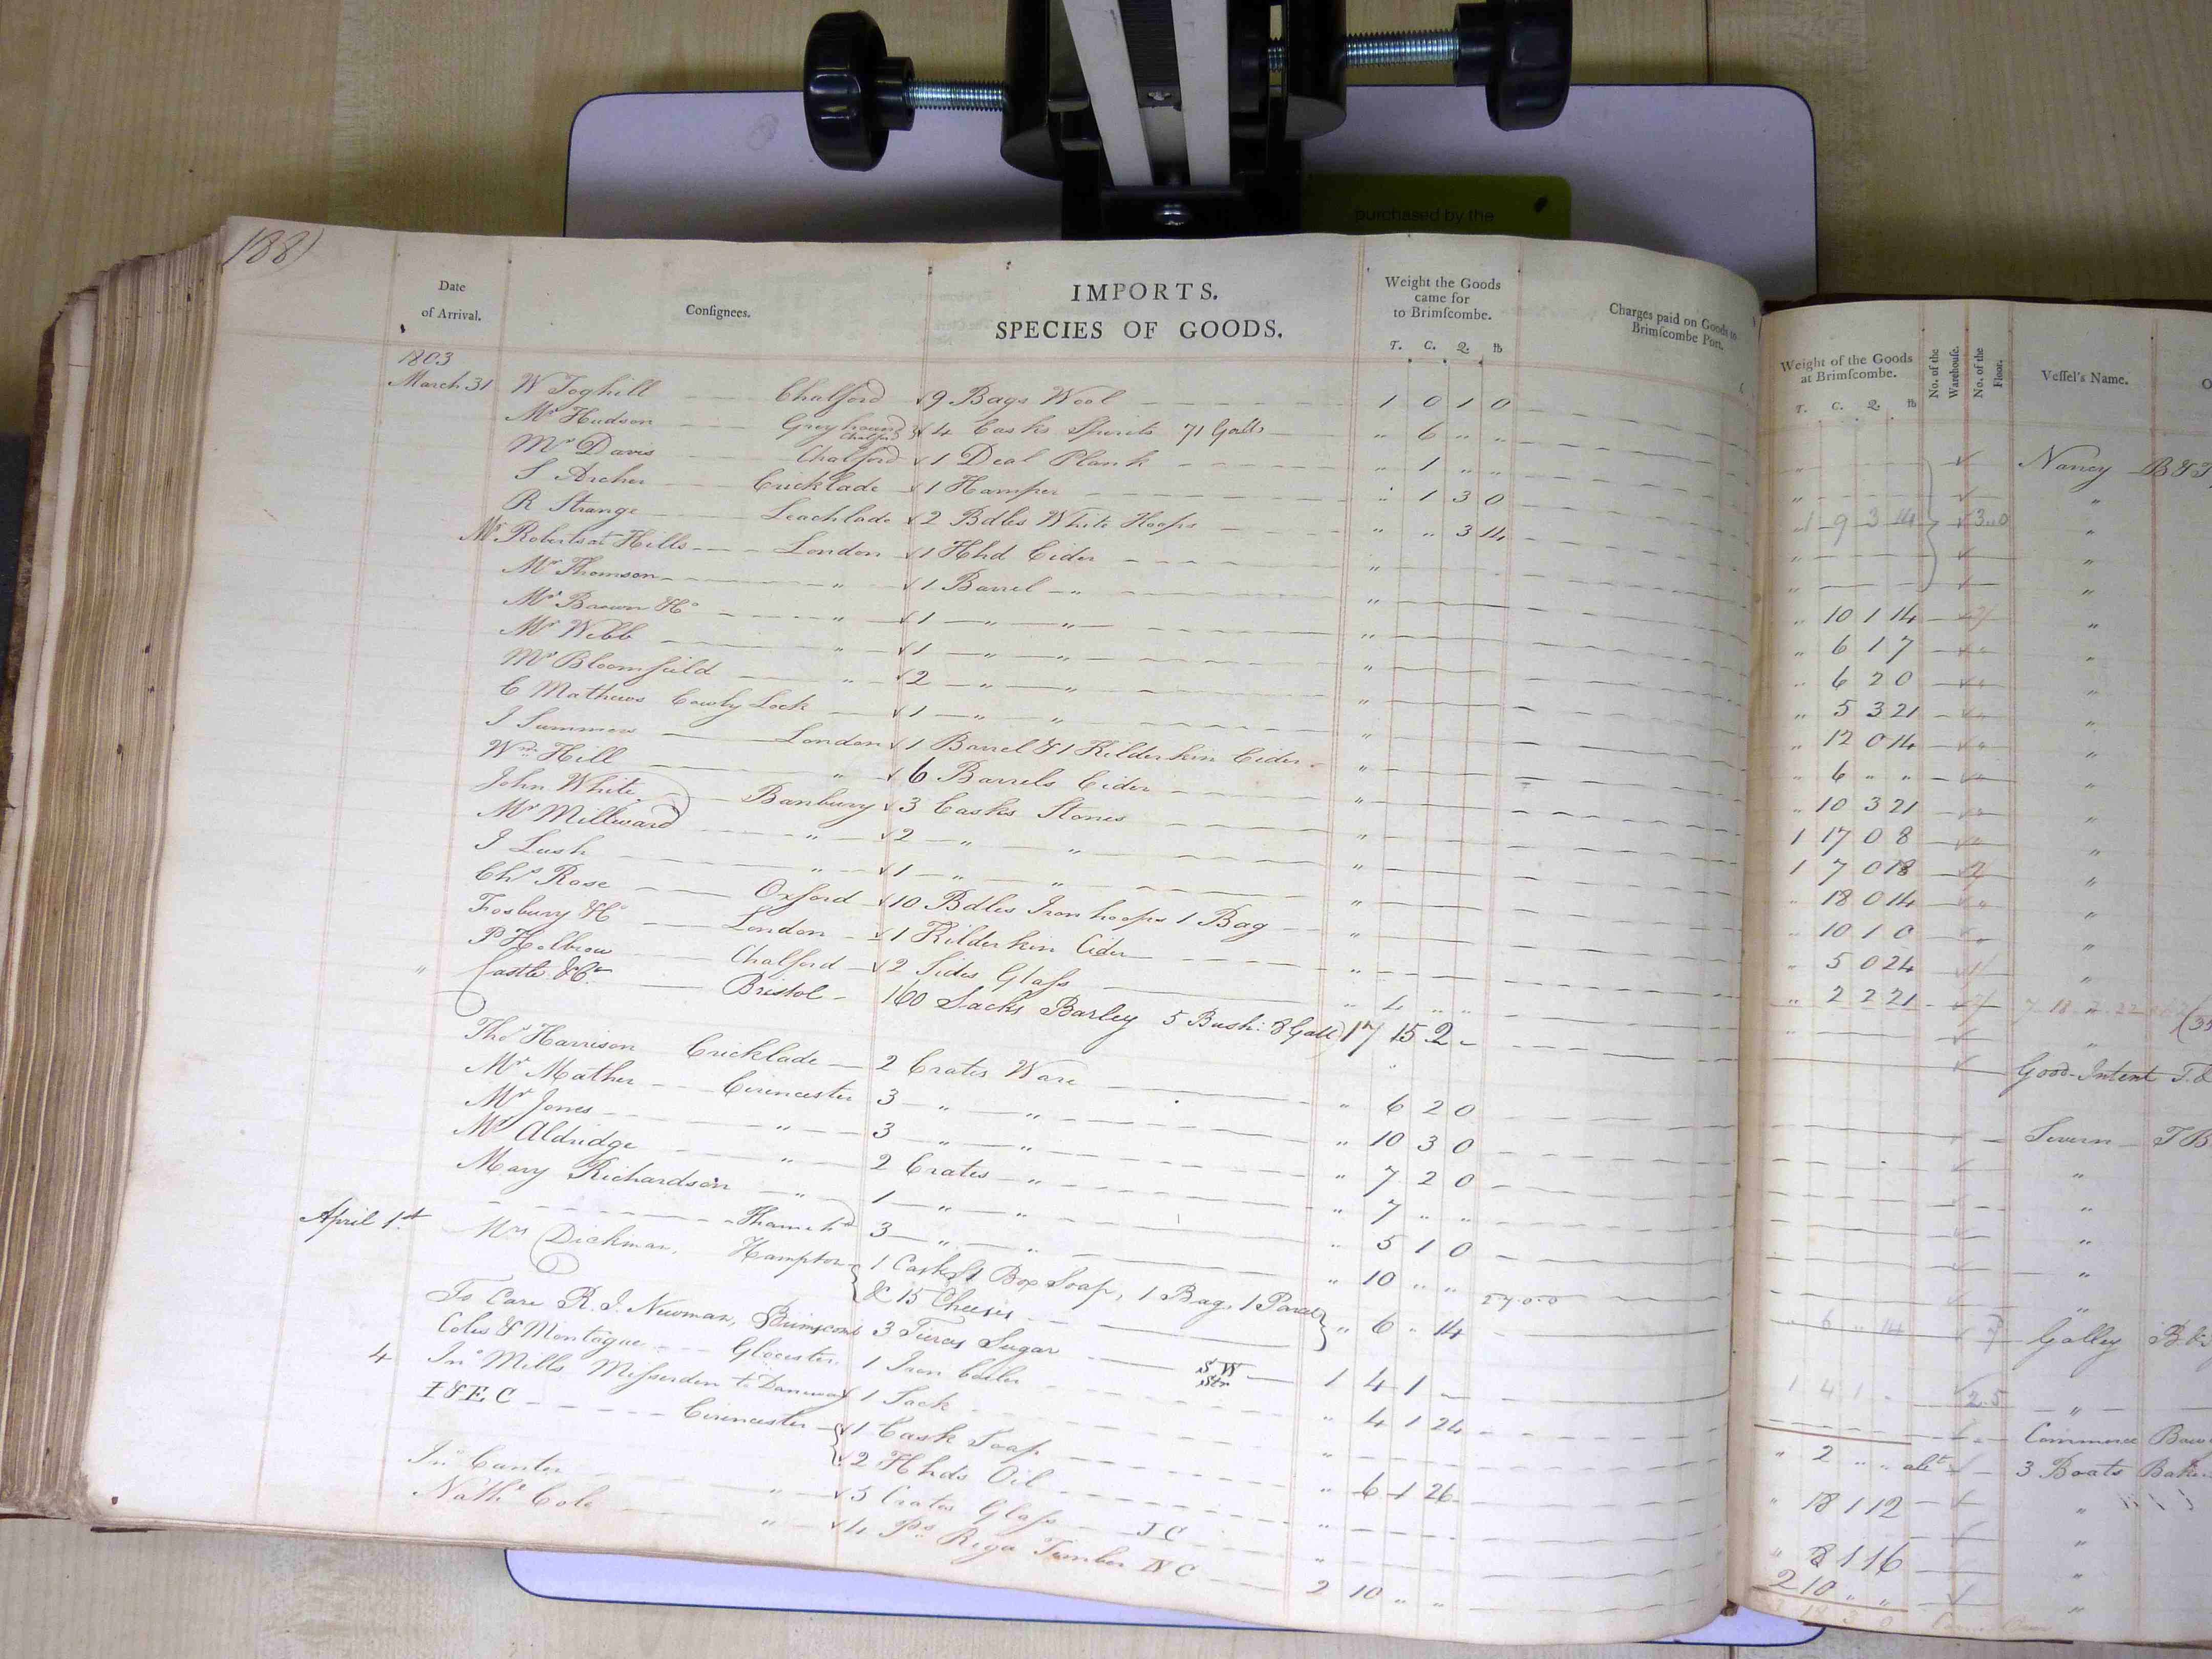 purchased by the
188)
Date
of Arrival.
Conſignees.
IMPORTS.
SPECIES OF GOODS.
Weight the Goods
came for
to Brimſcombe.
T. C. Q. lb
Charges paid on Goods to
Brimſcombe Port.
Weight of the Goods
at Brimſcombe.
T. C. Q. lb
No. of the
Warehouſe.
No. of the
Floor.
Veſſel's Name.
1803
March 31 W Toghill Chalford √ 9 Bags Wool 1 0 1 0 Nancy
Mr Hudson Greyhound Chalford √ 4 Casks Spirits 71 Galls " 6 " "
Mr Davis Chalford √ 1 Deal Plank " 1 " " 1 9 3 14
S Archer Cricklade √ 1 Hamper " 1 3 0
R Strange Leachlade √ 2 Bdles White Hoops " " 3 14
Mr Roberts at Hills London √ 1 Hhd Cider " 10 1 14
Mr Thomson " √ 1 Barrel " " 6 1 7
Mr Brown & Co " √ 1 " " " 6 2 0
Mr Webb " √ 1 " " " 5 3 21
Mr Bloomfield " √ 2 " " " 12 0 14
C Mathews Cowly Lock √ 1 " " " 6 " "
J Summers London √ 1 Barrel & 1 Kilderkin Cider " 10 3 21
Wm Hill " √ 6 Barrels Cider 1 17 0 8
John White Banbury √ 3 Casks Stones 1 7 0 18
Mr Millward " √ 2 " " " 18 0 14
J Lush " √ 1 " " " 10 1 0
Chs Rose Oxford √ 10 Bdles Iron hoops 1 Bag " 5 0 24
Fosbury & Co London √ 1 Kilderkin Cider " 2 2 21
P Holbrow Chalford √ 2 Sides Glass " 4 " "
" Castle & Co Bristol 160 Sacks Barley 5 Bush: 8 Gall 17 15 2 - Good-Intent
Thos Harrison Cricklade 2 Crates Ware " 6 2 0 Severn
Mr Mather Cirencester 3 " " " 10 3 0
Mr Jones " 3 " " " 7 2 0
Mr Aldridge " 2 Crates " " 7 " "
Mary Richardson " 1 " " " 5 1 0
3 " " " 10 " "
April 1st Mrs Dickman, Hampton 1 Cask & 1 Box Soap, 1 Bag, 1 Parcel
& 15 Cheeses " 6 " 14 " 6 " 14 Galley
To Care R. I. Newman, Brimscomb 3 Tierces Sugar S W 1 4 1 - 1 4 1 -
Coles & Montague Glocester 1 Iron boiler " 4 1 24 Commerce
4 Jno Mills Misserden to Daneway √ 1 Sack " 2 " " 3 Boats
I & E C Cirencester √ 1 Cask Soap " 6 1 26 18 1 12
√ 2 Hhds Oil
Jno Canter " √ 5 Crates Glass J C " 8 1 16
Nathl Cole " √ 4 Ps Riga Timber N C 2 10 " " 2 10 " "